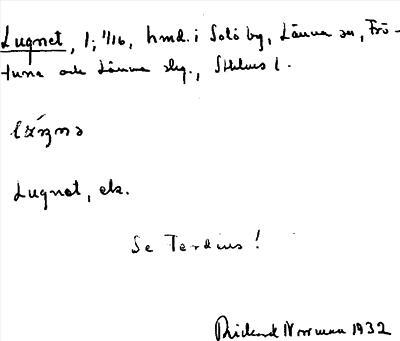 Lugnet, 1; 1/16, hmd. i Solö by, Länna sn, Frö-
tuna och Länna slg., Sthlms l.
Lugnet, ek.
Se Terdius!
Rickard Norrman 1932